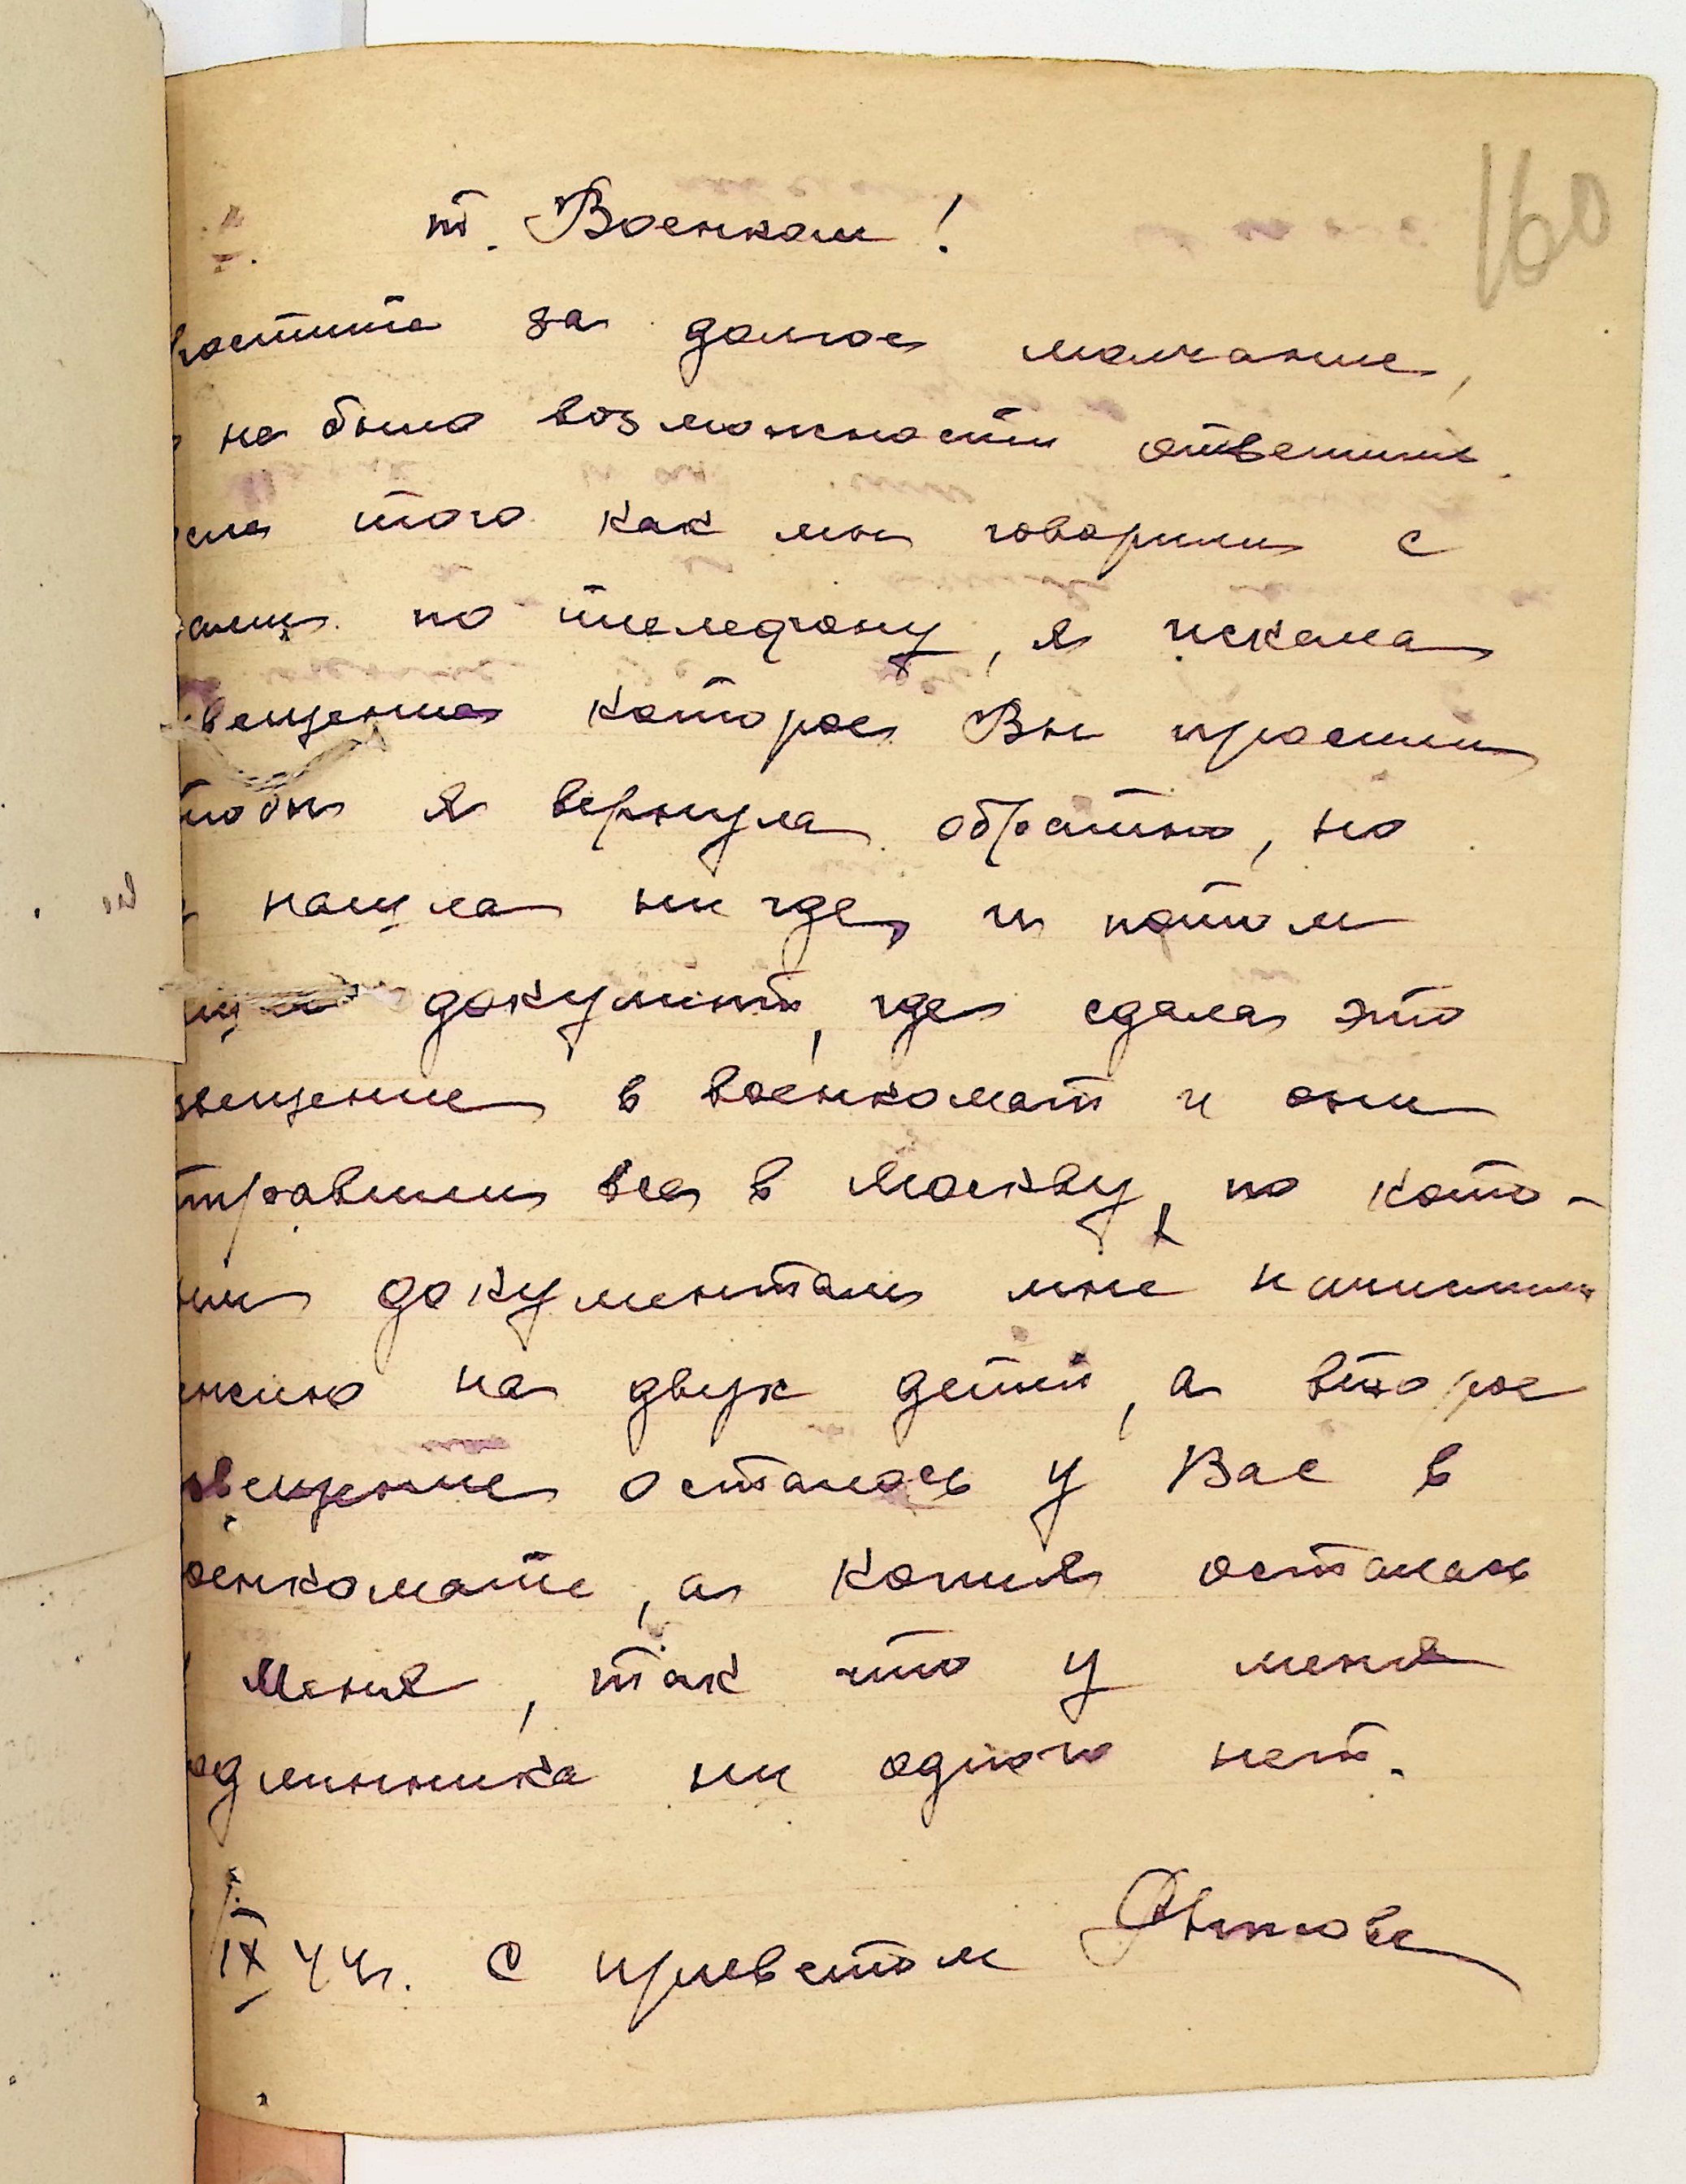 160
т. Военком!
ростите за долгое молчание,
не было возможности ответить.
сле того как мы говорили с
ами по телефону, я искала
вещение которое Вы просили
чтобы я вернула обратно, но
нашла ни где, и потом
документы, где сдала это
звещение в военкомат и они
тправили все в Москву, по кото-
ым документам мне начислили
енсию на двух детей, а второе
звещение осталось у Вас в
оенкомате, а копия осталась
меня, так что у меня
одлинника ни одного нет.
IX 44г. С приветом